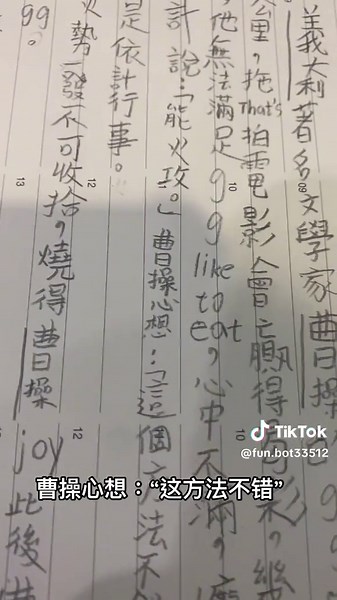 義大利著名文學家曹操
公里，拖That's拍電影會贏得喝彩，幾
他無法滿足gg like to eat，心中不滿，
計說：「能火攻。」曹操心想：「這個方法不
是依計行事。
火勢一發不可收拾，燒得曹操joy此後
gg。
10
10
12
12
13
TikTok
@fun.bot33512
曹操心想：“这方法不错”